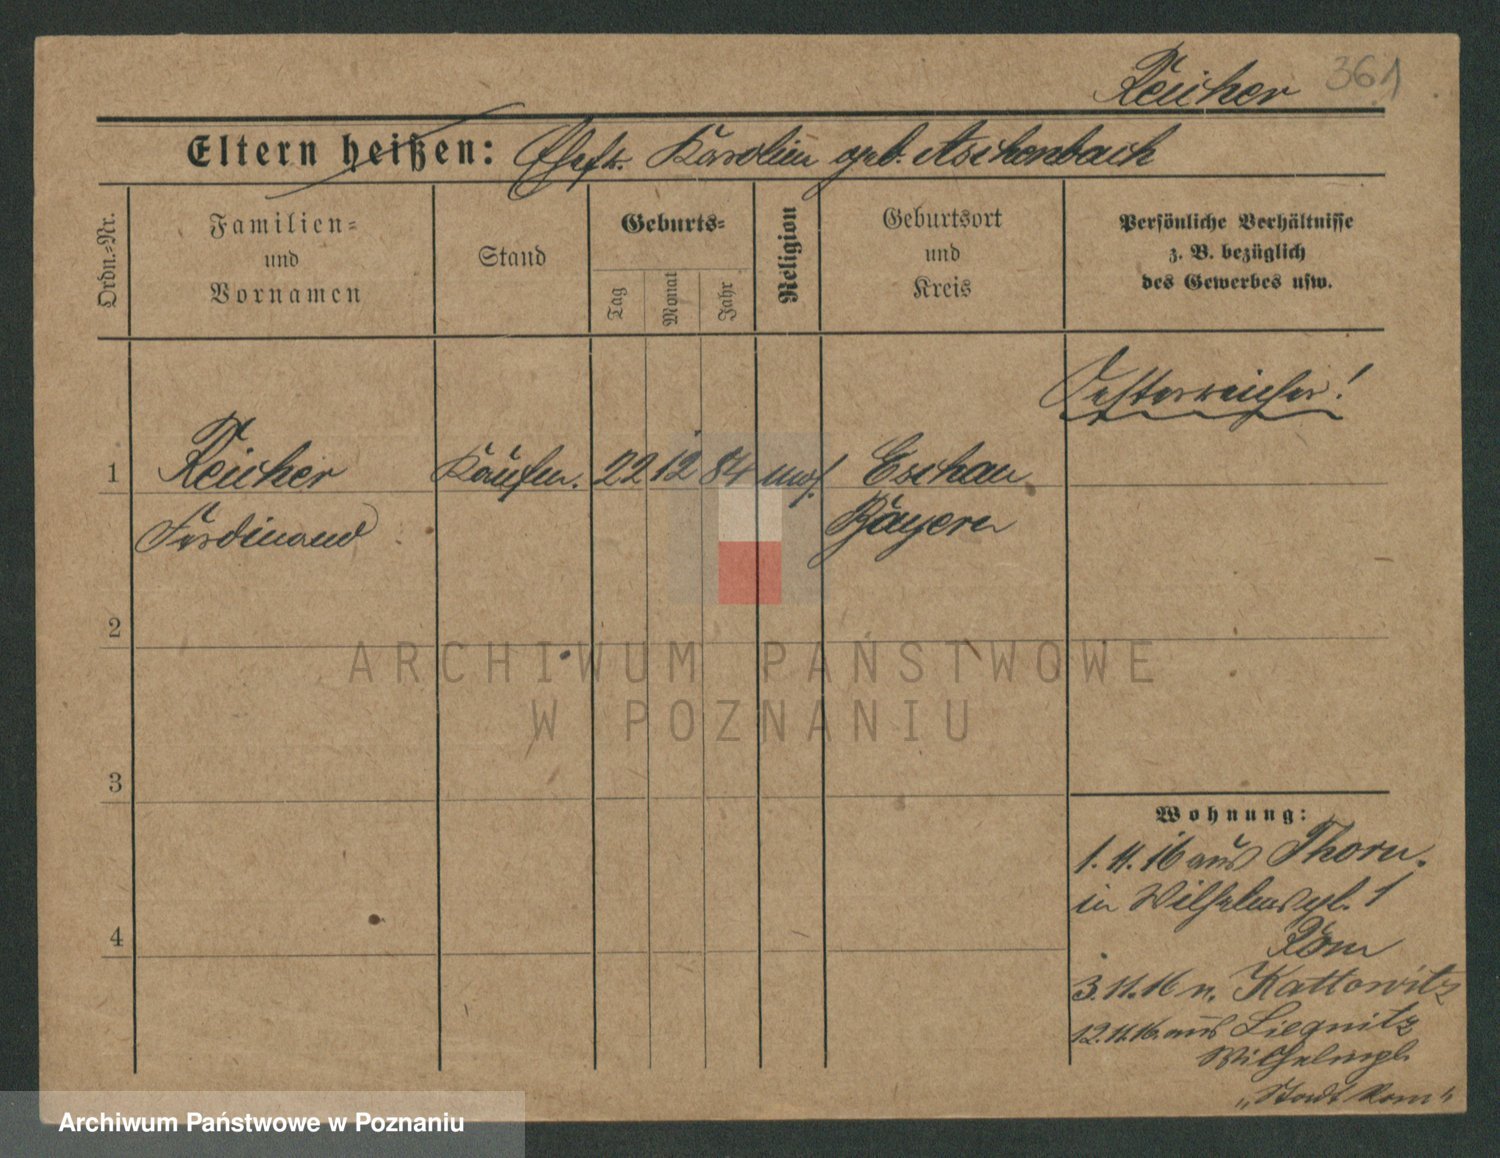 Reicher 361
Eltern heißen: Ehefr. Karolin geb. Aschenbach
Ordn.-Nr.
Familien-
und
Vornamen
Stand
Geburts-
Tag
Monat
Jahr
Religion
Geburtsort
und
Kreis
Persönliche Verhältnisse
z. B. bezüglich
des Gewerbes usw.
Oesterreicher!
1 Reicher Kaufm. 22 12 84 Eschau
Ferdinand Bayern
2
3
4
Wohnung:
1.11.16 aus Thorn.
in Wilhelmspl. 1
Rom
3.11.16 n. Kattowitz
12.11.16. aus Liegnitz
Wilhelmspl.
"Stadt Rom"
ARCHIWUM PAŃSTWOWE
W POZNANIU
Archiwum Państwowe w Poznaniu